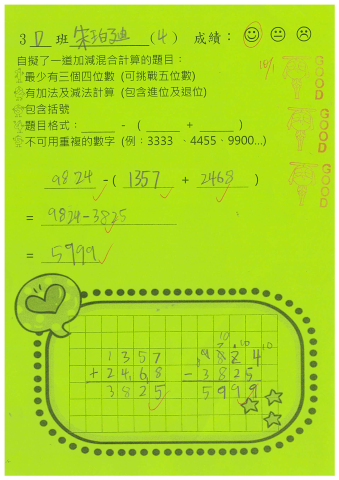 3 D 班 朱珀廸 (4) 成績：
自擬了一道加減混合計算的題目：
最少有三個四位數 (可挑戰五位數)
有加法及減法計算 (包含進位及退位)
包含括號
題目格式：____ - ( ____ + ____ )
不可用重複的數字 (例：3333 、4455、9900...)
GOOD
GOOD
GOOD
9824 - ( 1357 + 2468 )
= 9824-3825
= 5999
1357
+ 2468
3825
9824
- 3825
5999